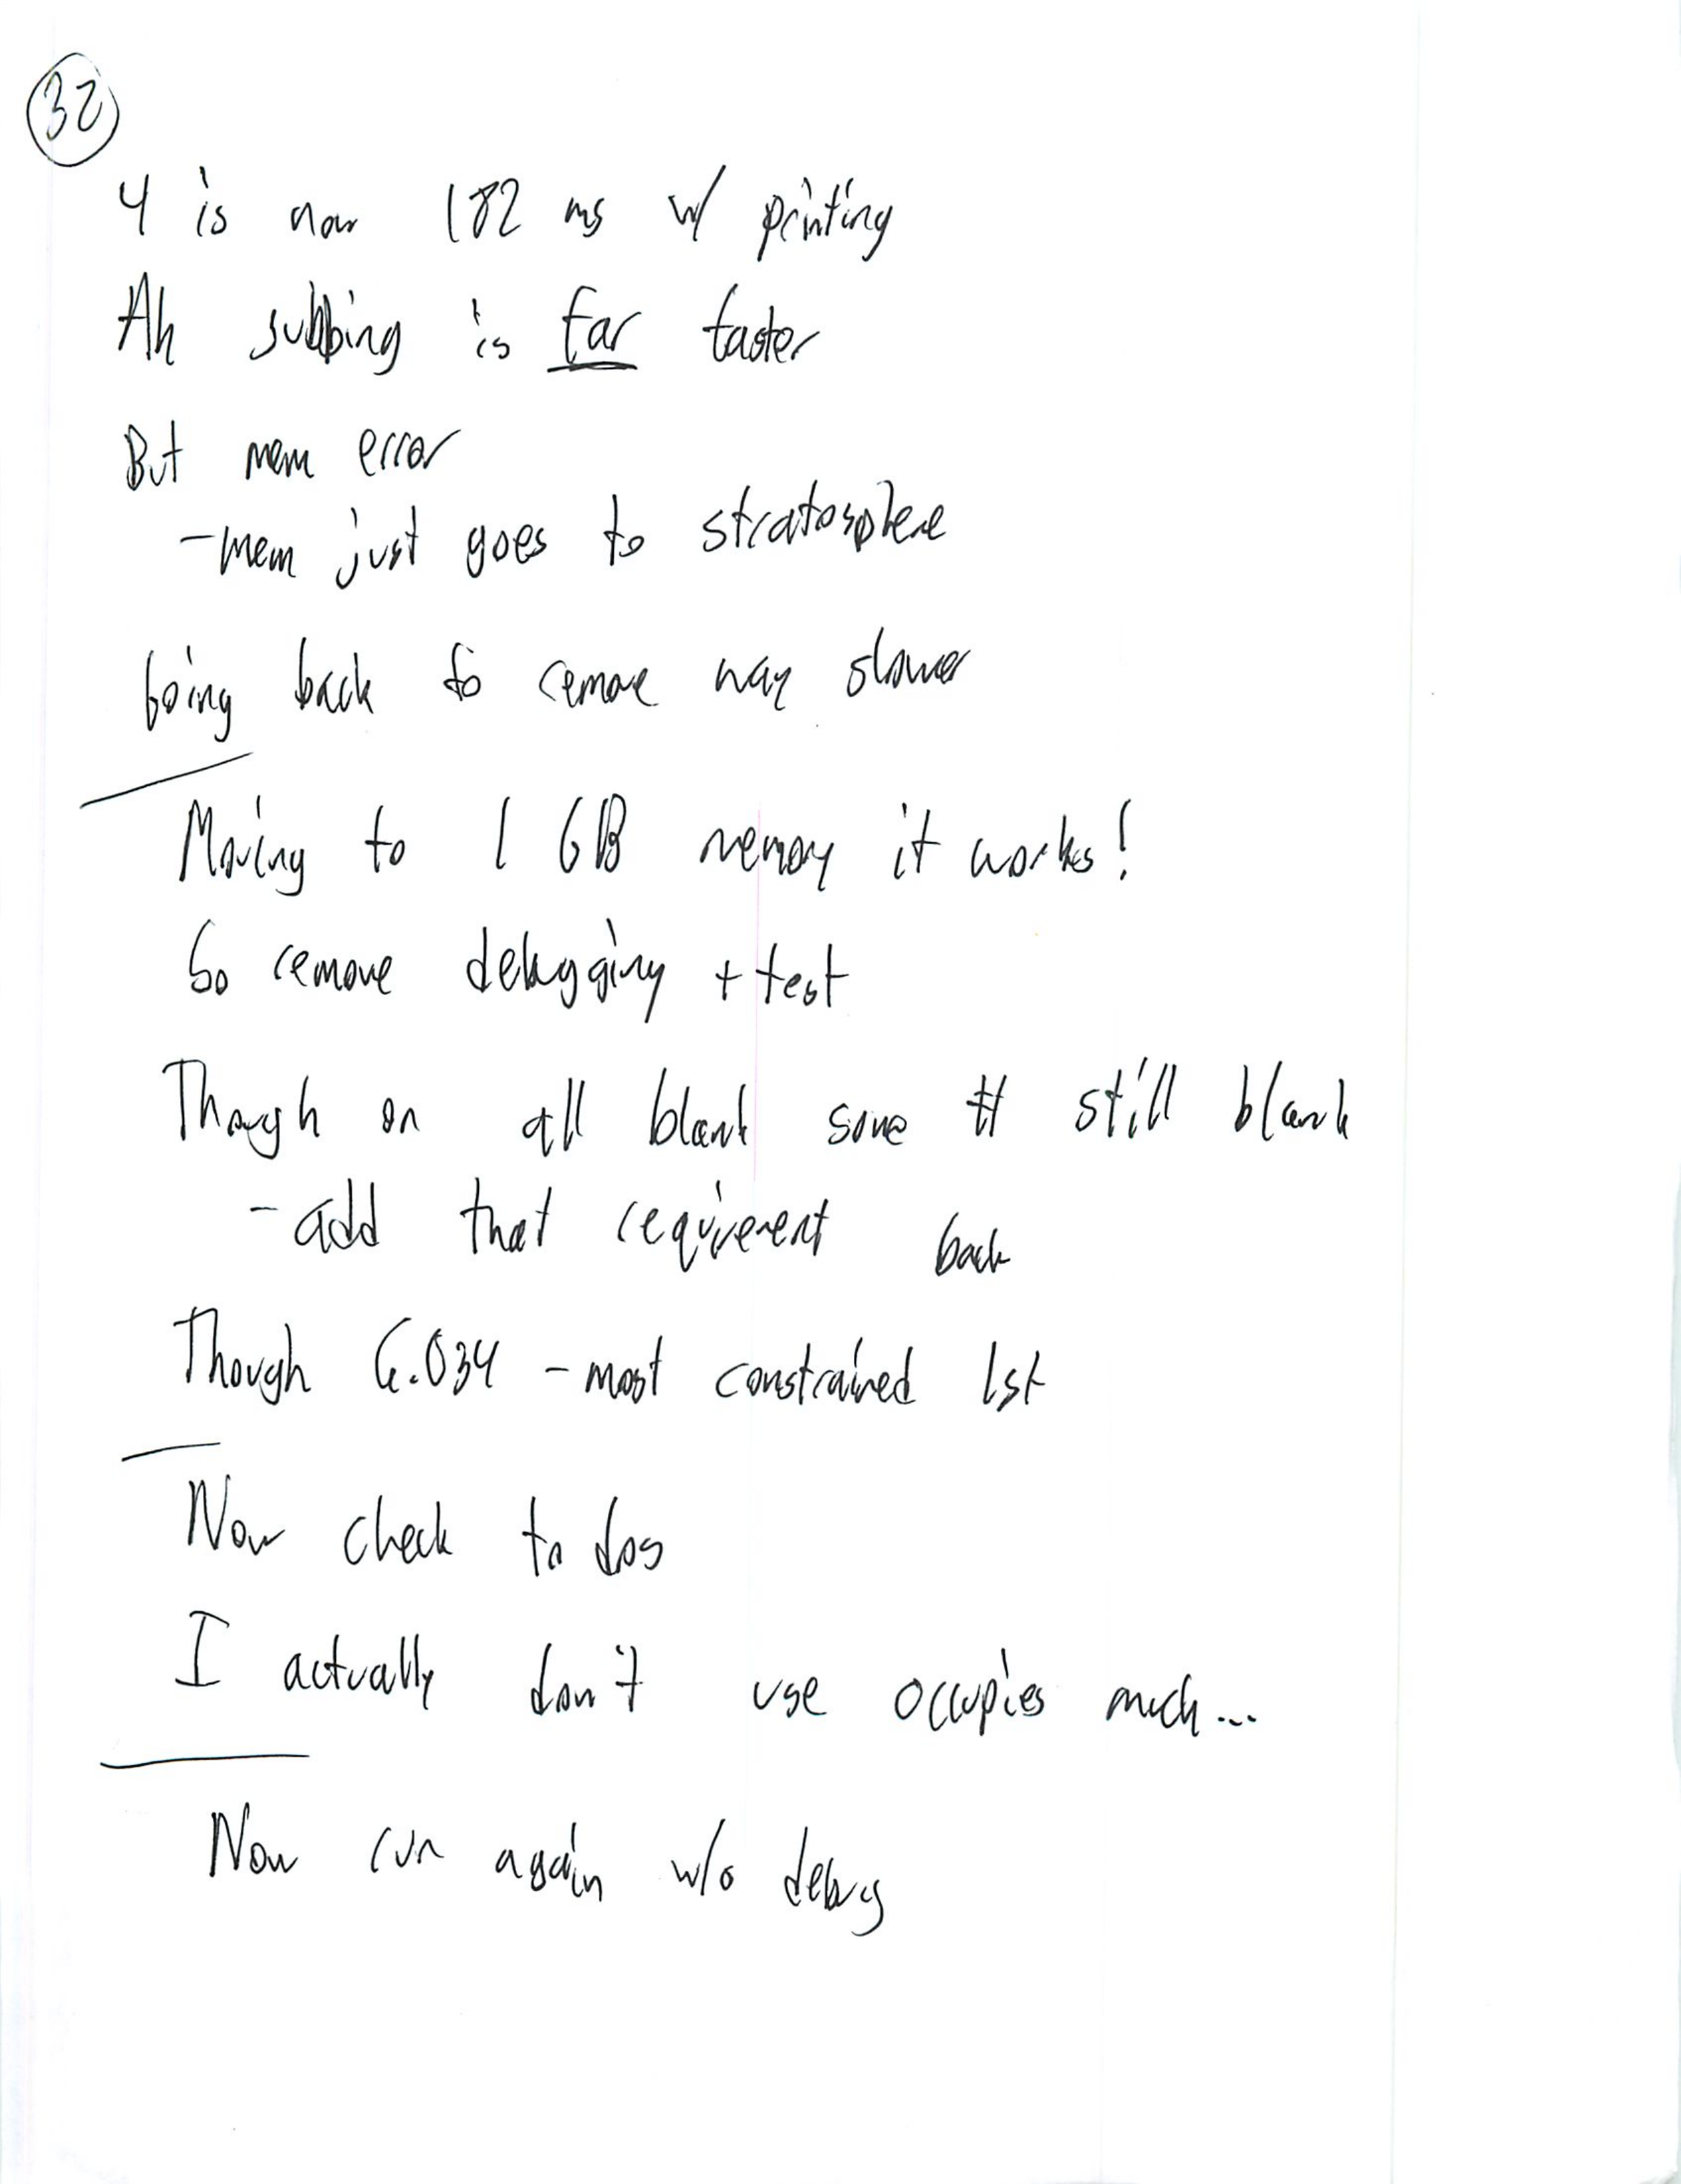 32
4 is now 182 ms w/ printing
Ah subbing is far faster
But mem error
- mem just goes to stratosphere
Going back to remove way slower
Moving to 1 GB memory it works!
So remove debugging + test
Though on all blank some # still blank
- add that requirement back
Though 6.034 - most constrained 1st
Now check to dos
I actually don't use occupies much...
Now run again w/o debug